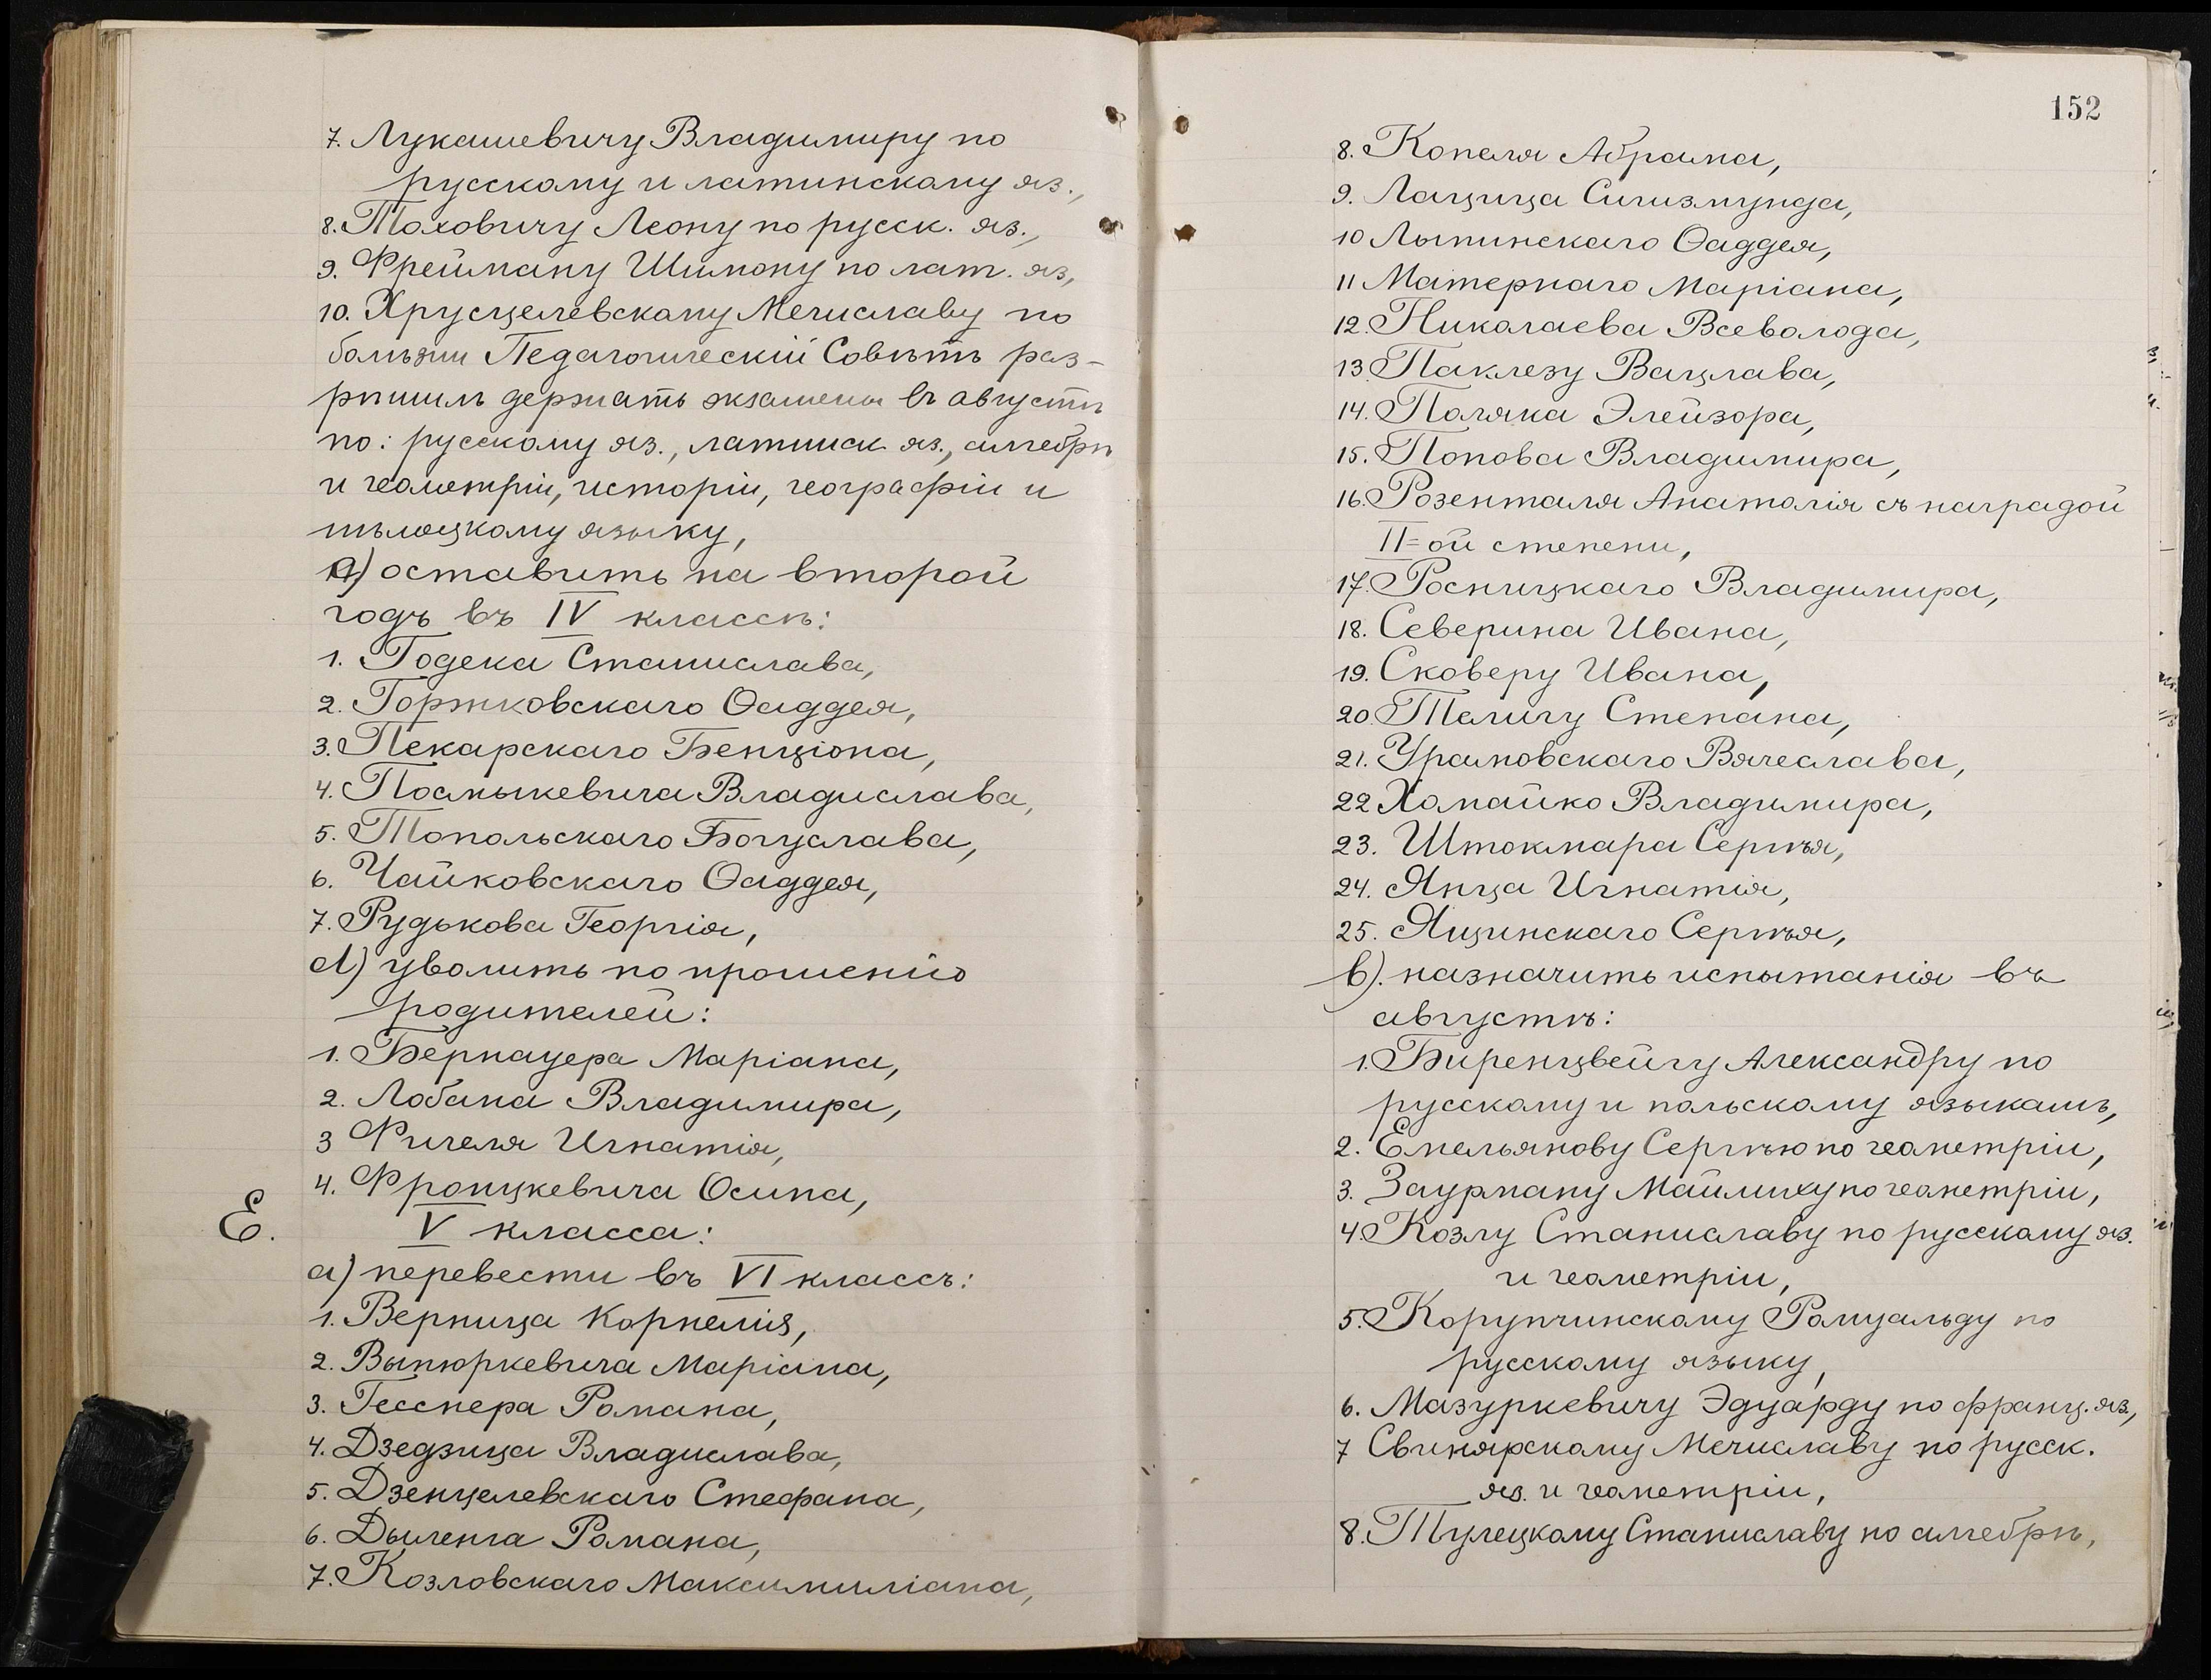 7. Лукашевичу Владимиру по
русскому и латинскому яз.,
8. Тоховичу Леону по русск. яз.,
9. Фрейману Шимону по лат. яз,
10. Хрусцелевскому Мечиславу по
болѣзни Педагогическій Совѣтъ раз-
рѣшилъ держать экзамены въ августѣ
по: русскому яз., латинск яз., алгебрѣ
и геометріи, исторіи, географіи и
нѣмецкому языку,
с) оставить на второй
годъ въ IV классѣ:
1. Годека Станислава,
2. Горжковскаго Ѳаддея,
3. Пекарскаго Бенціона,
4. Посмыкевича Владислава,
5. Топольскаго Богуслава,
6. Чайковскаго Ѳаддея,
7. Рудькова Георгія,
d) уволить по прошенію
родителей:
1. Бернауера Маріана,
2. Лобана Владимира,
3 Фигеля Игнатія,
4. Фронцкевича Осипа,
Е. V класса:
а) перевести въ VI классъ:
1. Верница Корнелія,
2. Выпюркевича Маріана,
3. Гесснера Романа,
4. Дзедзица Владислава,
5. Дзенцелевскаго Стефана,
6. Дыленга Романа,
7. Козловскаго Максимиліана,
152
8. Копеля Абрама,
9. Лацица Сигизмунда,
10 Лыпинскаго Ѳаддея,
11 Матернаго Маріана,
12. Николаева Всеволода,
13 Паклезу Вацлава,
14. Поляка Элейзора,
15. Попова Владимира,
16. Розенталя Анатолія съ наградой
II=ой степени,
17. Росницкаго Владимира,
18. Северина Ивана,
19. Сковеру Ивана,
20. Талигу Степана,
21. Урамовскаго Вячеслава,
22 Хомайко Владимира,
23. Штокмара Сергѣя,
24. Янца Игнатія,
25. Ящинскаго Сергѣя,
b). назначить испытанія въ
августѣ:
1. Биренцвейгу Александру по
русскому и польскому языкамъ,
2. Емельянову Сергѣю по геометріи,
3. Заурману Маймиху по геометріи,
4. Козлу Станиславу по русскому яз.
и геометріи,
5. Корупчинскому Ромуальду по
русскому языку,
6. Мазуркевичу Эдуарду по франц. яз.,
7 Свинярскому Мечиславу по русск.
яз. и геометріи,
8. Тулецкому Станиславу по алгебрѣ,